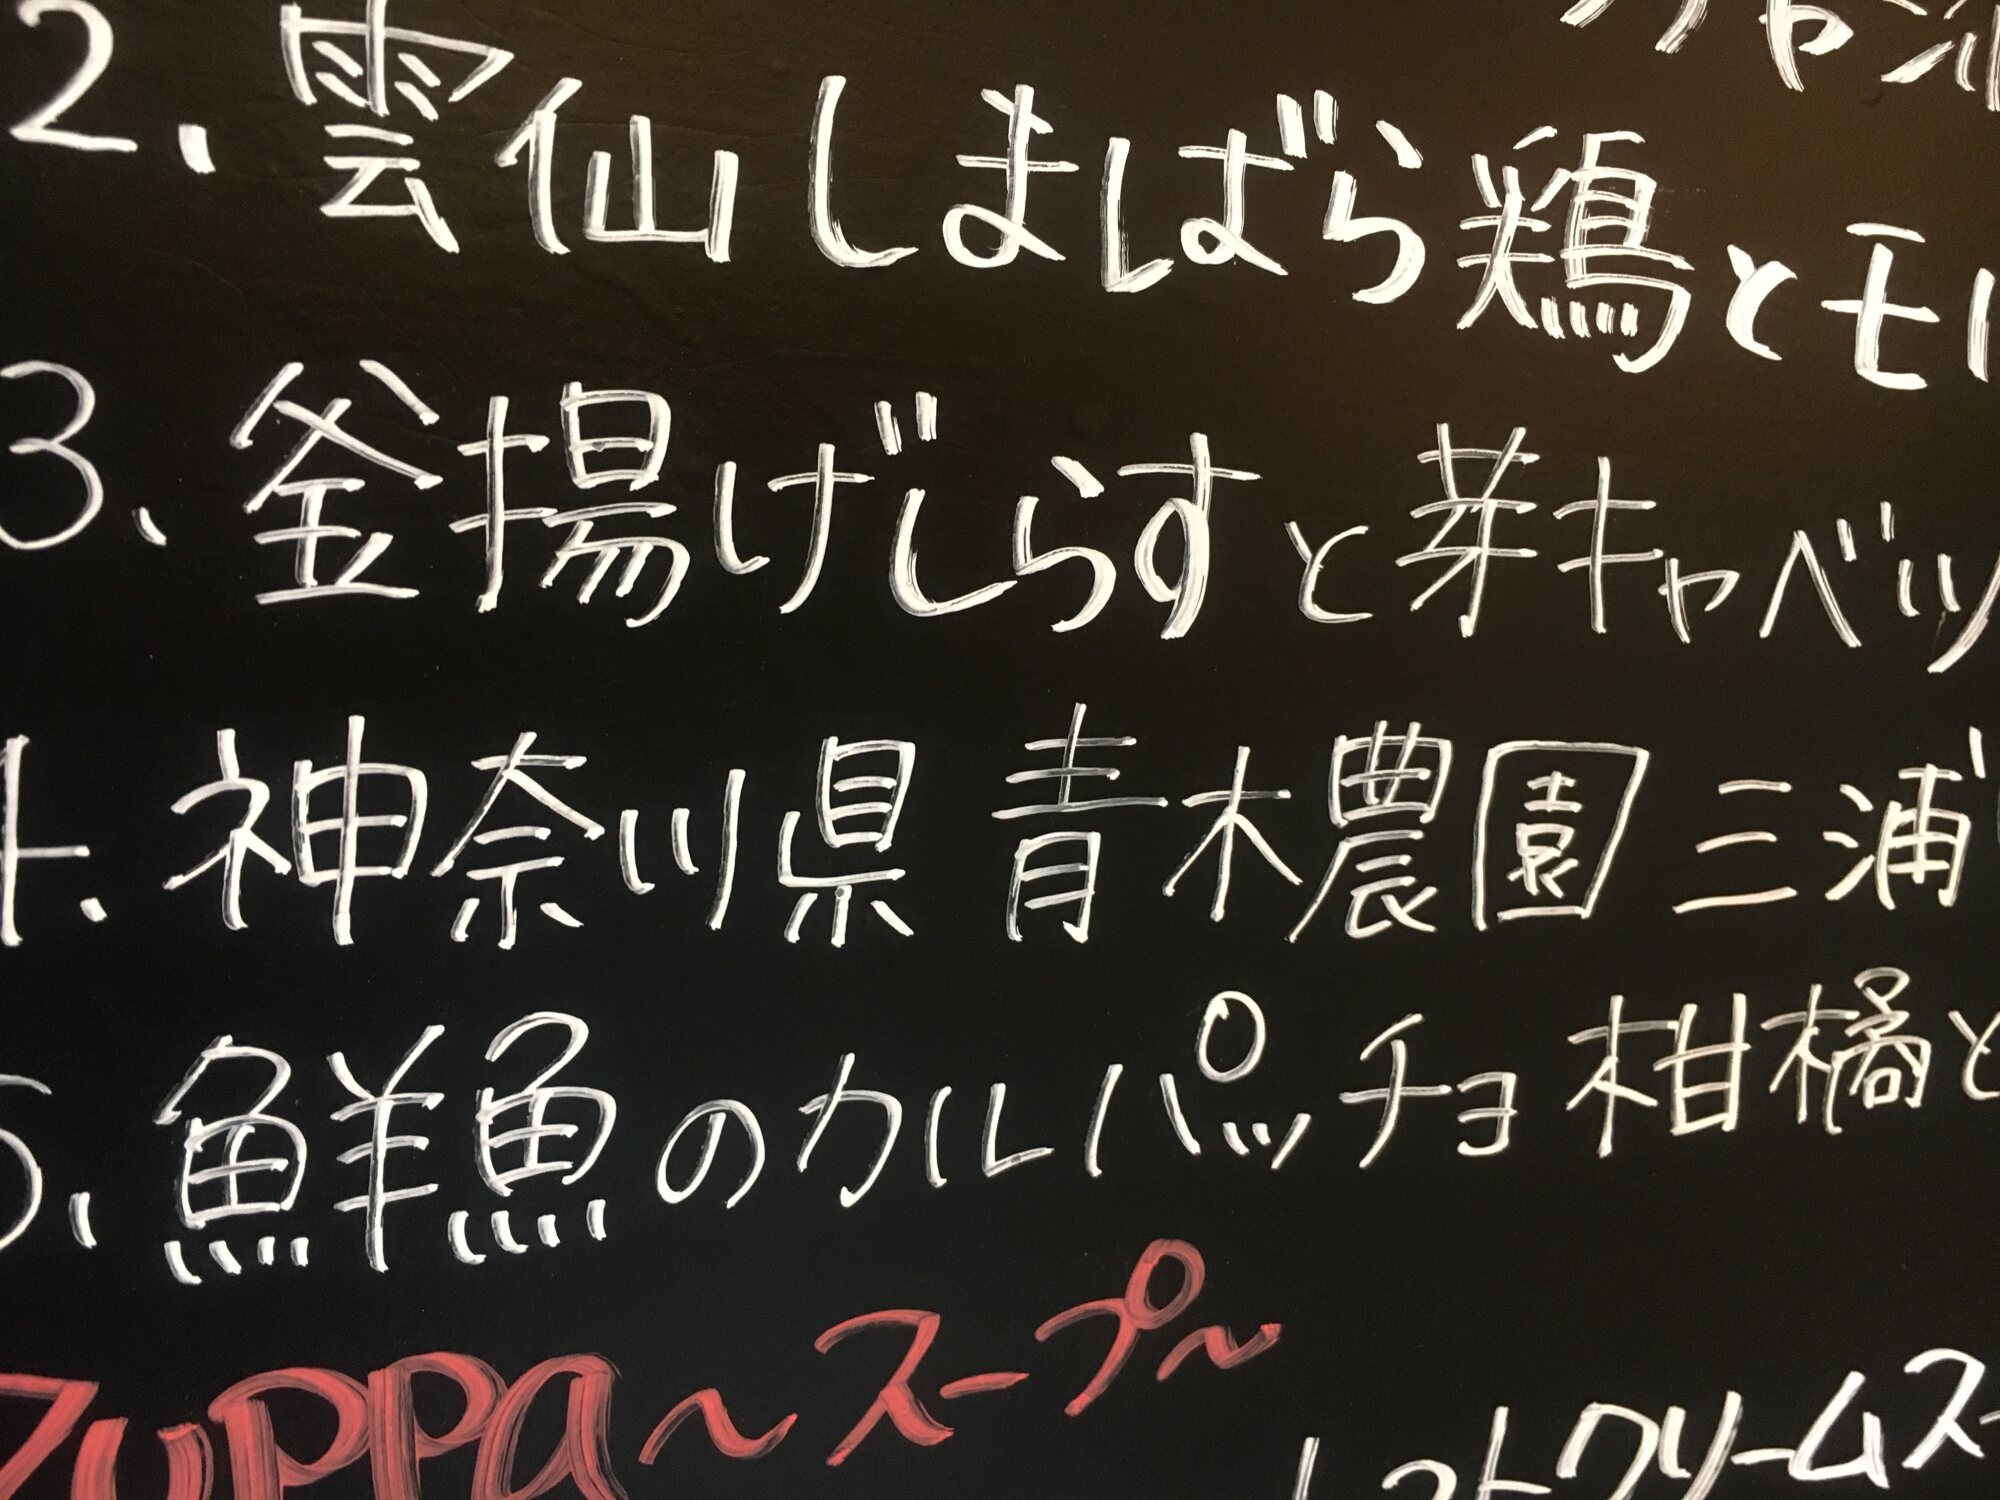 2. 雲仙しまばら鶏とモ
3. 釜揚げしらすと芽キャベツ
4. 神奈川県 青木農園 三浦
5. 鮮魚のカルパッチョ 柑橘と
ZUPPA～スープ～
トクリームス